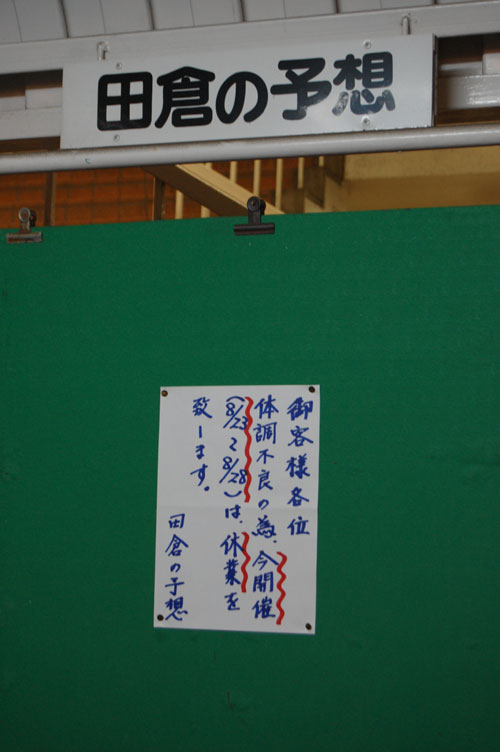 田倉の予想
御客様各位
体調不良の為、今開催
(8/23~8/28)は、休業を
致します。
田倉の予想